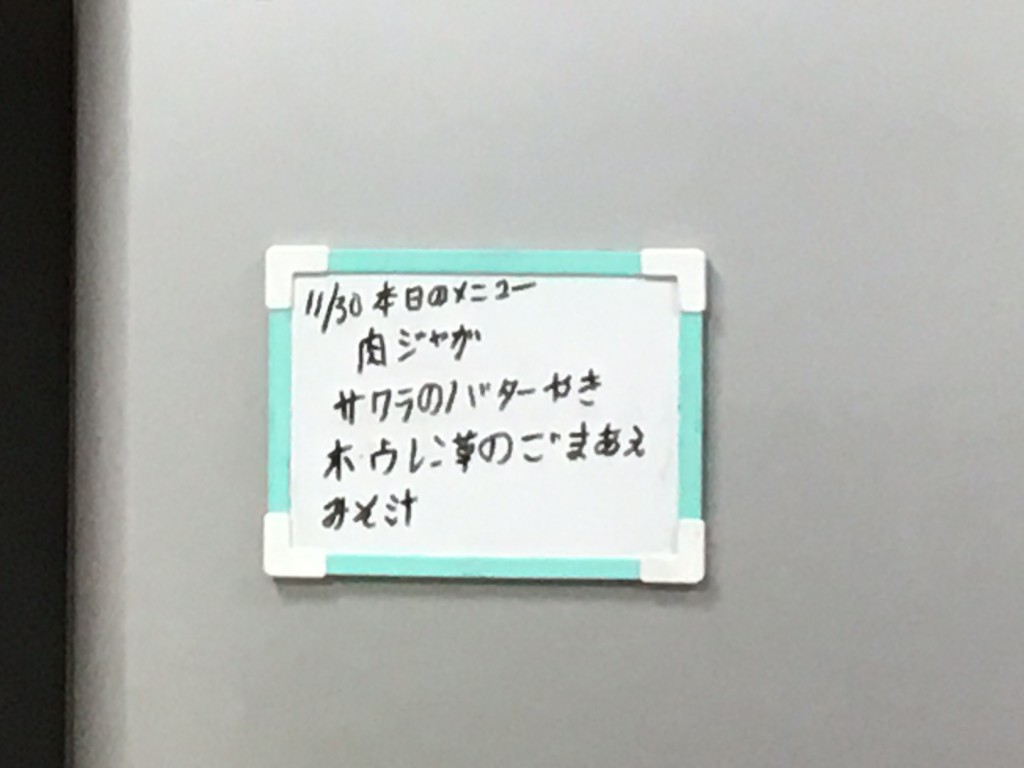 11/30 本日のメニュー
肉ジャガ
サワラのバターやき
ホウレン草のごまあえ
みそ汁